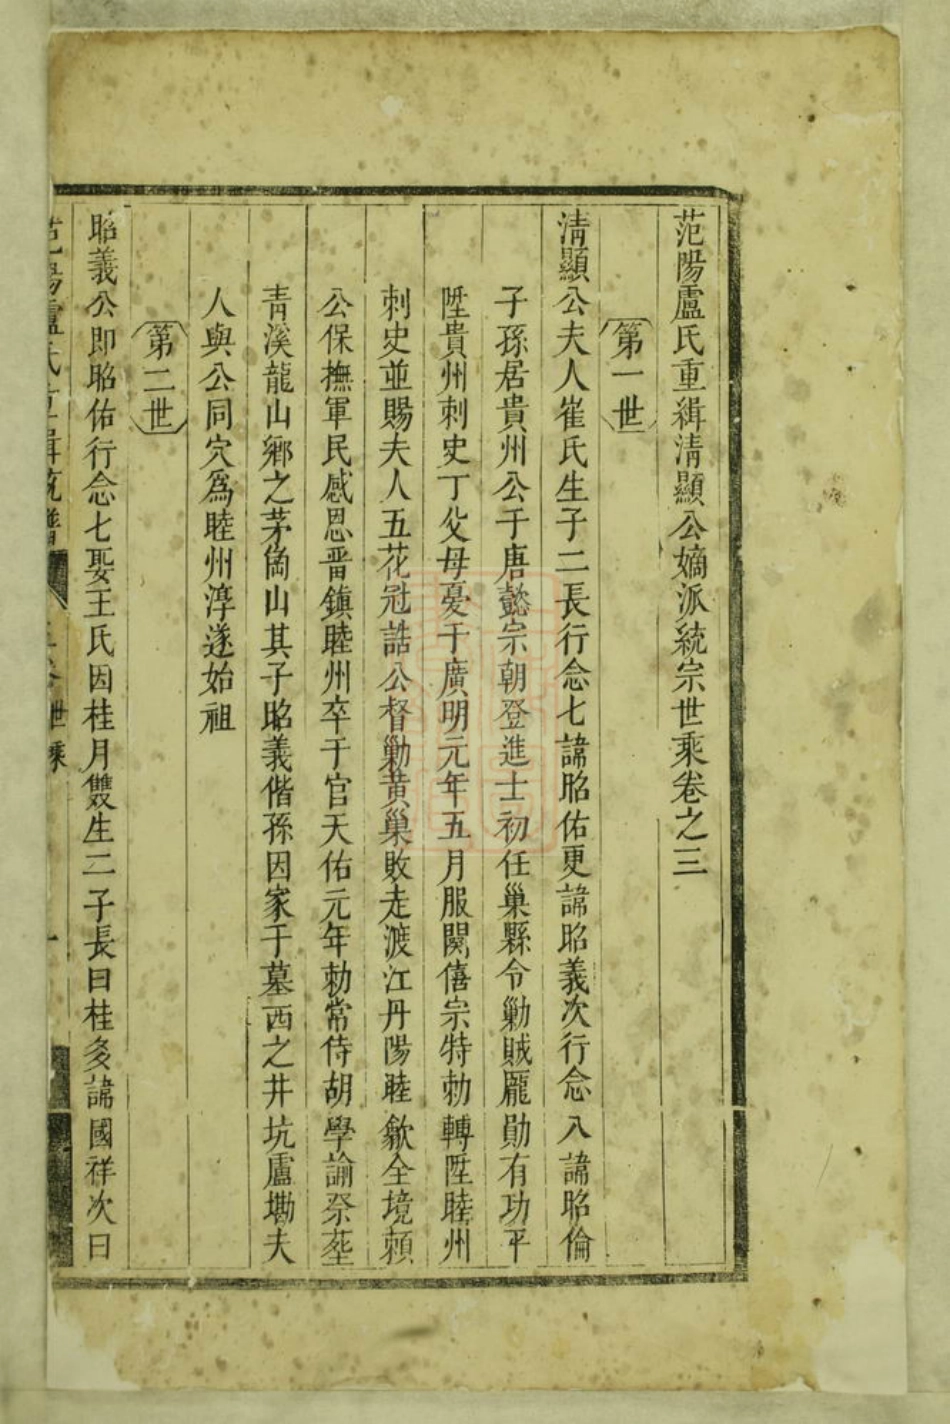 范陽盧氏重緝清顯公嫡派統宗世乘卷之三
第一世
清顯公夫人崔氏生子二長行念七諱昭佑更諱昭義次行念八諱昭倫
子孫居貴州公于唐懿宗朝登進士初任巢縣令勦賊龐勛有功平
陞貴州刺史丁父母憂于廣明元年五月服闋僖宗特勅轉陞睦州
刺史並賜夫人五花冠誥公督勦黃巢敗走渡江丹陽睦歙全境頼
公保撫軍民感恩畨鎮睦州卒于官天佑元年勅常侍胡學諭祭塟
青溪龍山鄉之茅崗山其子昭義偕孫因家于墓西之井坑盧墈夫
人與公同穴爲睦州淳遂始祖
第二世
昭義公即昭佑行念七娶王氏因桂月雙生二子長曰桂多諱國祥次曰